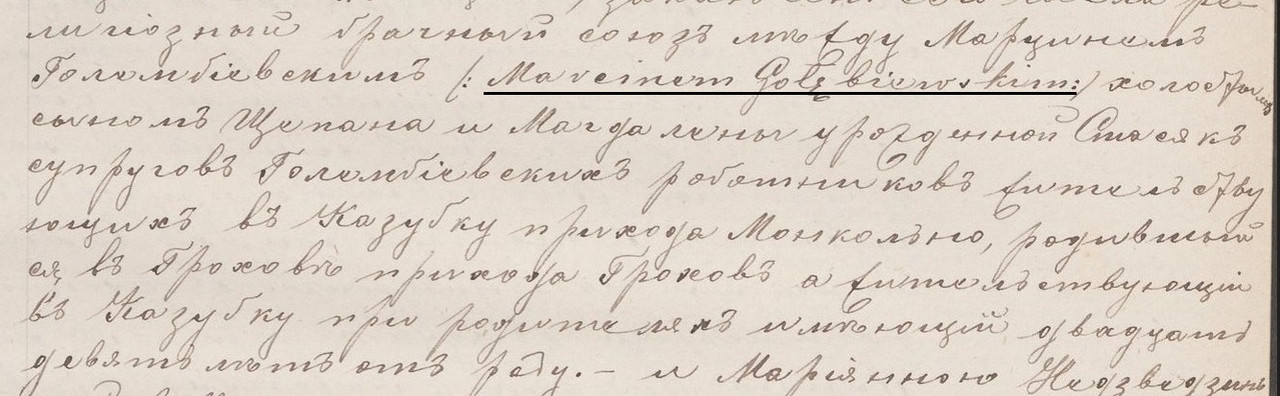 религіозный брачный союзъ между Марциномъ
Голембіевскимъ /: Marcinem Gołębiewskim:/ холостымъ
сыномъ Щепана и Магдалены урожденной Стасякъ
супруговъ Голембіевскихъ работниковъ жительству
ющихъ въ Казубку прихода Монкольно, родившый
ся въ Гроховѣ прихода Гроховъ а жительствующій
въ Казубку при родителяхъ имѣющій двадцать
девять лѣтъ отъ роду. – и Маріянною